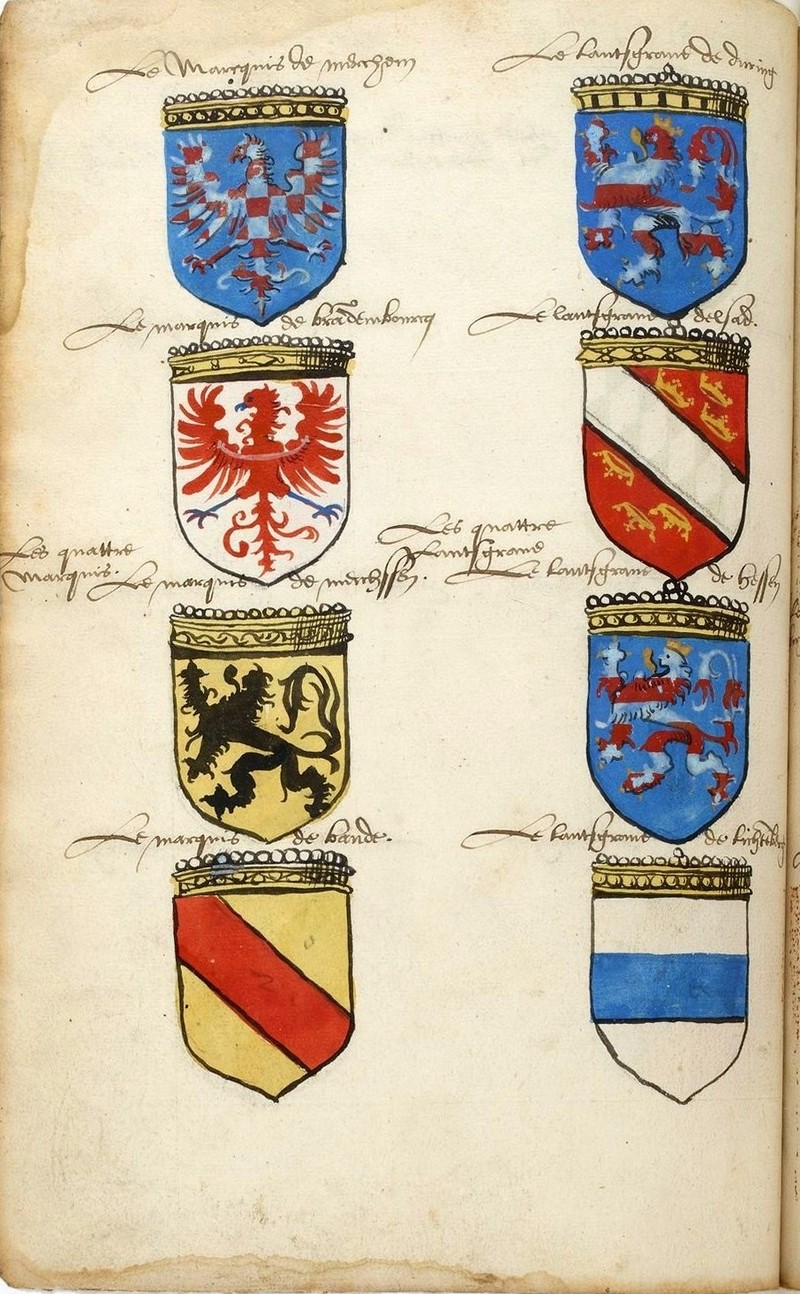 Le Marcquis de merchem
Le lantsgrave de during
Le marquis de brādembourcq
Le lantsgrave delsad.
Les quattre
marquis.
Les quattre
lantsgrave
Le marquis de merchssen.
Le lantsgrave de hessen
Le marquis de baude.
Le lantsgrave de